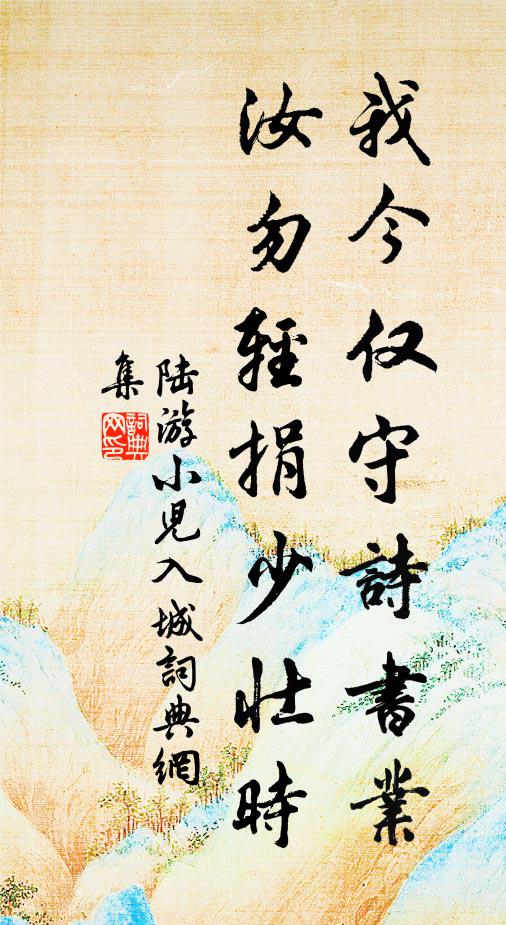 我今仅守詩書業
汝勿輕捐少壯時
陆游小兒入城詞典網
集
詞典
网印